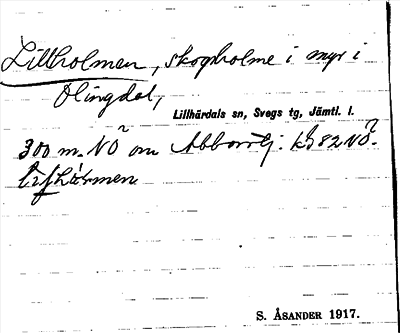 Lillholmen, skogholme i myr i
Olingdal,
Lillhärdals sn, Svegs tg, Jämtl. l.
300 m. NO om Abborrtj. 82 NO.
S. ÅSANDER 1917.